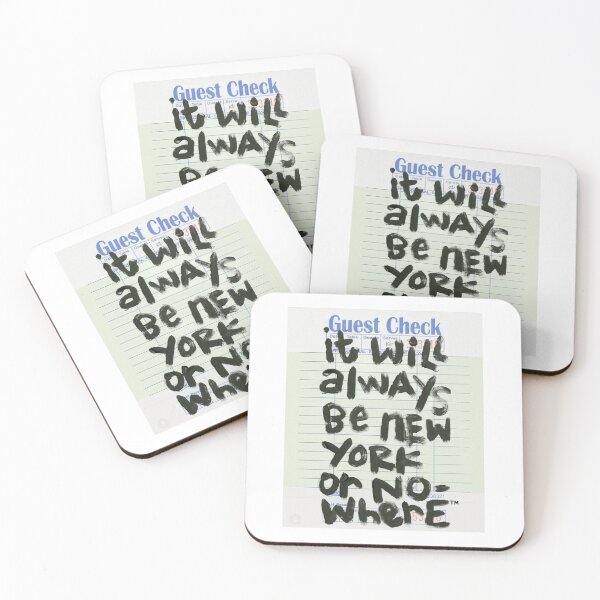 Guest Check
it will
always
Be New
Guest Check
it will
always
Be New
York
Guest Check
it will
always
Be New
York
or No-
where
Guest Check
it will
always
Be New
York
or No-
where™